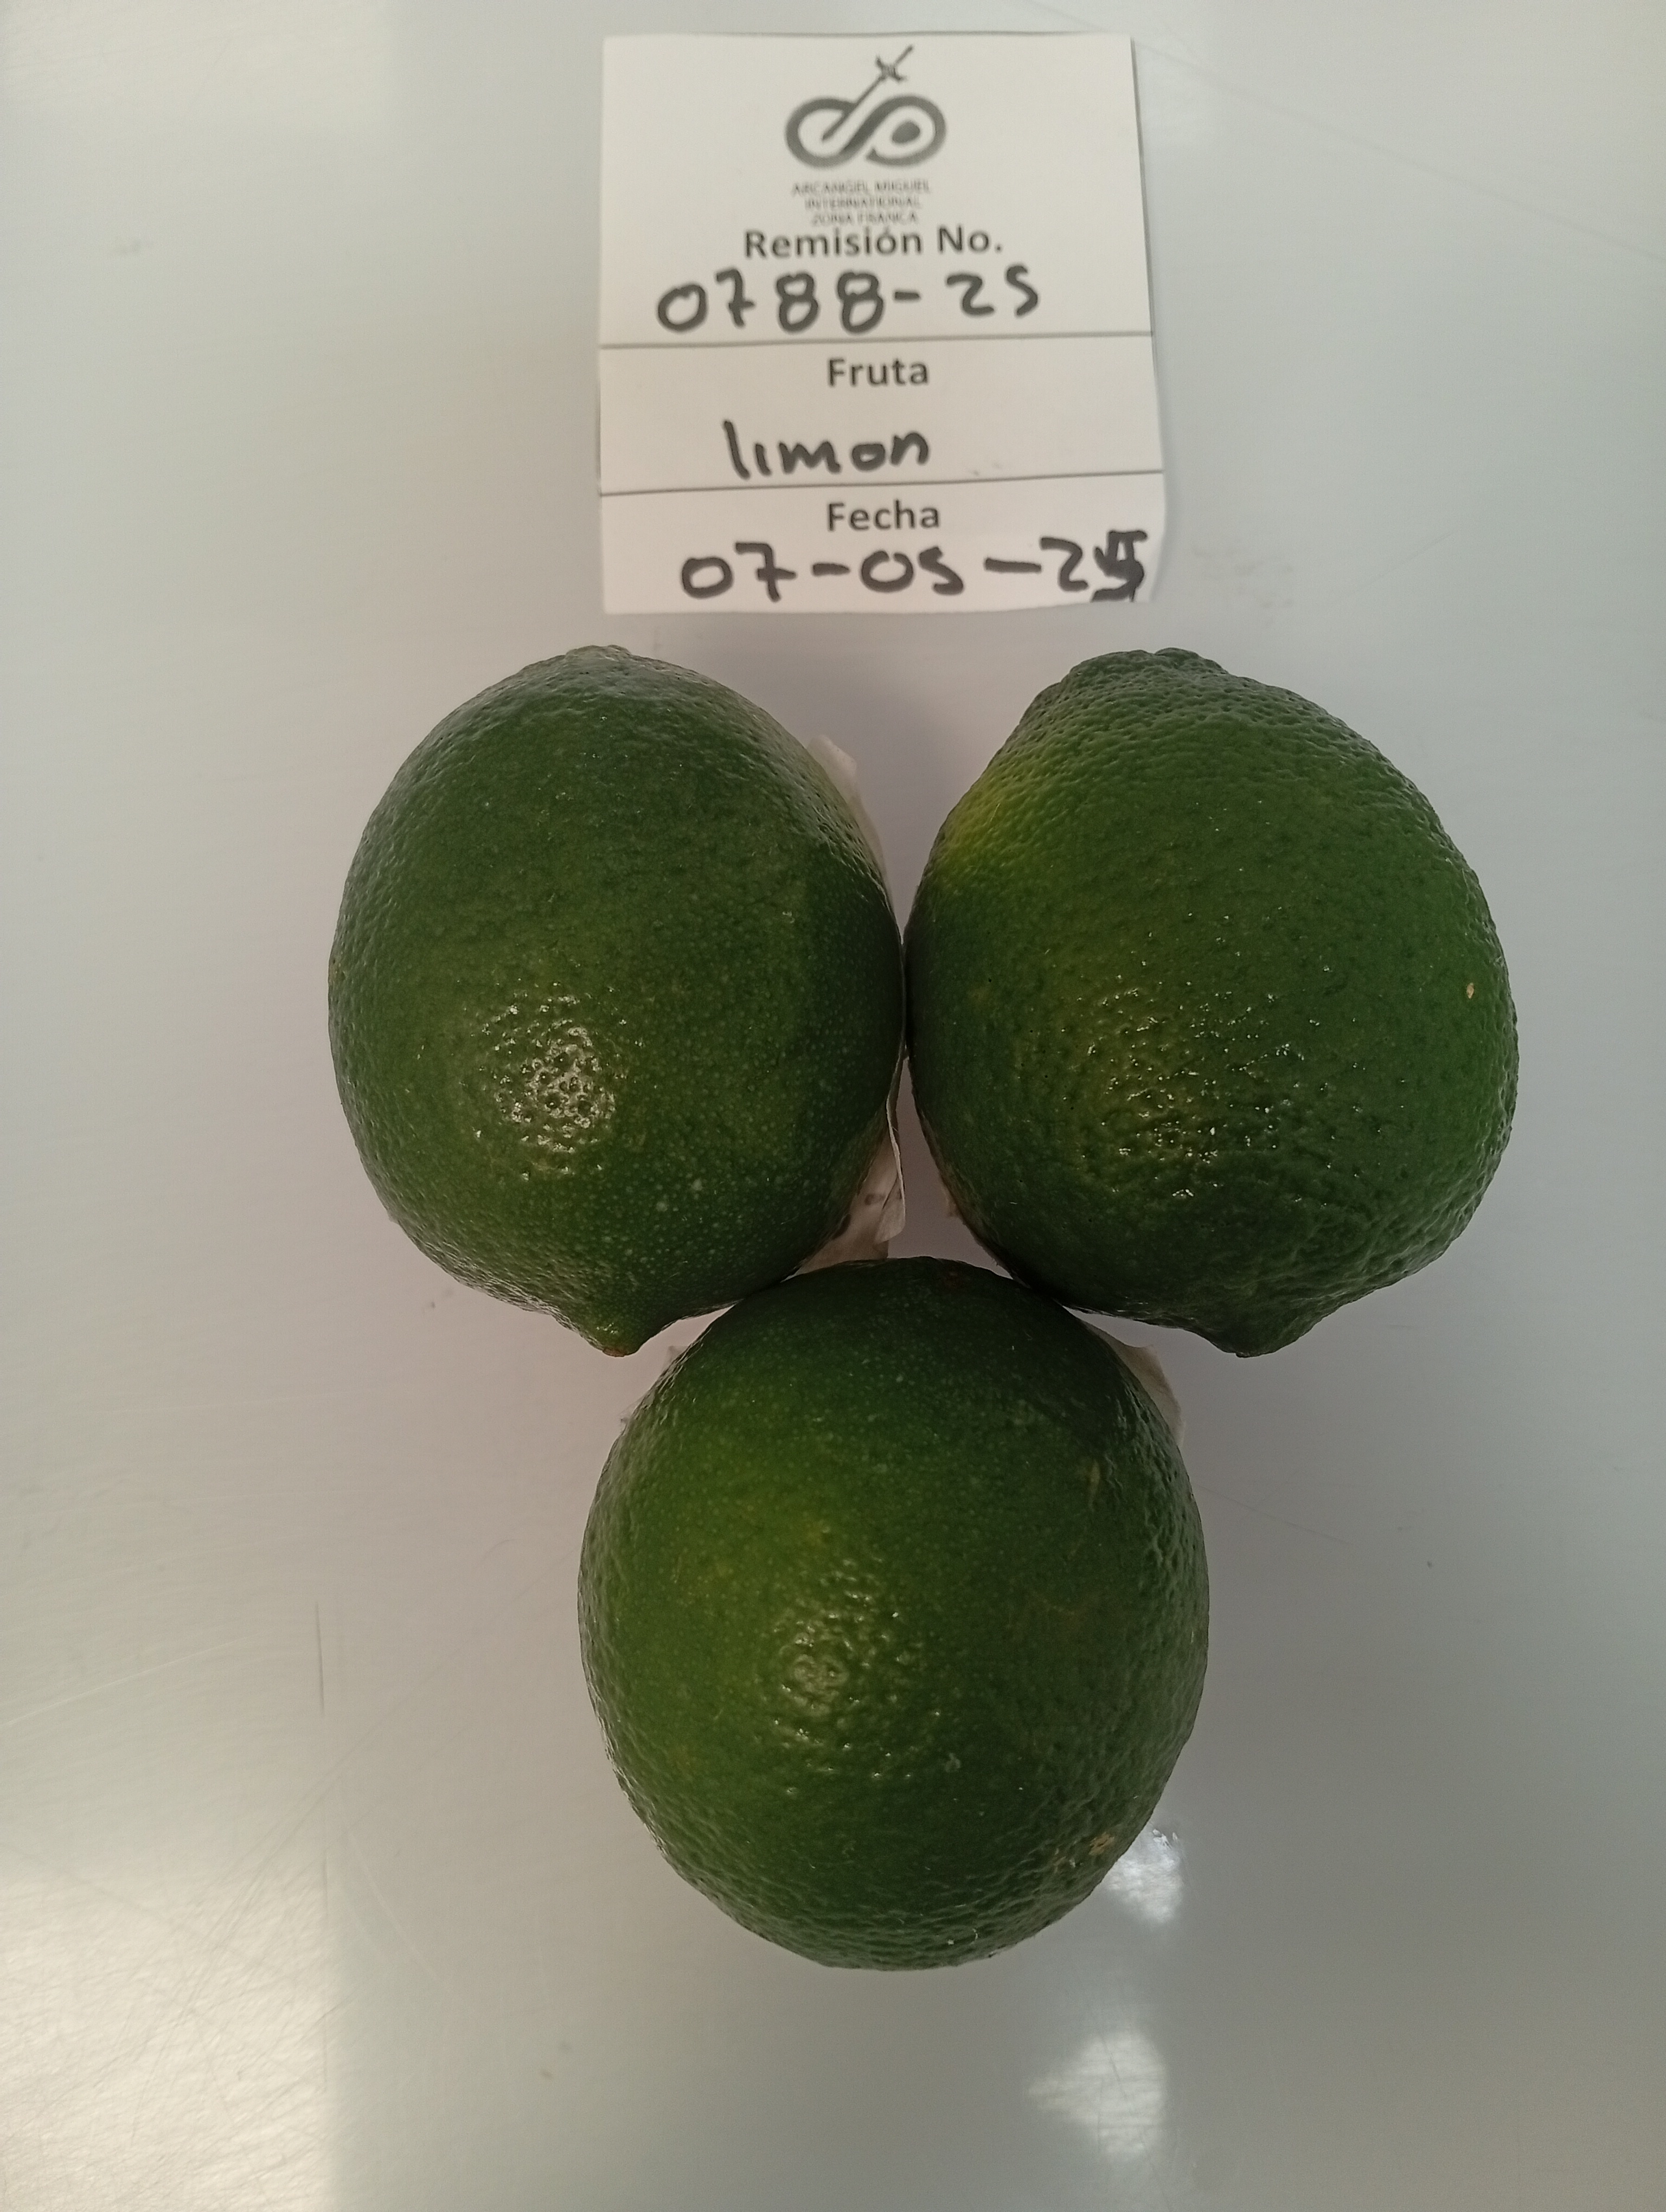 ARCANGEL MIGUEL
INTERNATIONAL
ZONA FRANCA
Remisión No.
0788-25
Fruta
limon
Fecha
07-05-25